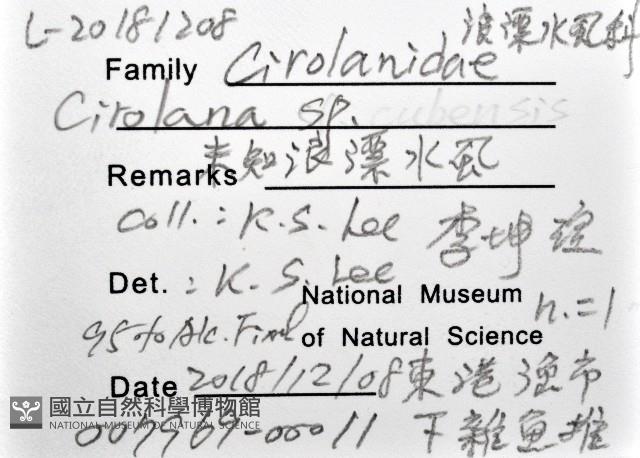 L-20181208 浪漂水虱科
Family Cirolanidae
Cirolana sp. cubensis
未知浪漂水虱
Remarks
coll.: K.S. Lee 李坤瑄
Det. : K. S. Lee
National Museum n.=1
95% Alc. Final of Natural Science
Date 2018/12/08 東港漁市
國立自然科學博物館
NATIONAL MUSEUM OF NATURAL SCIENCE
-00011 下雜魚堆